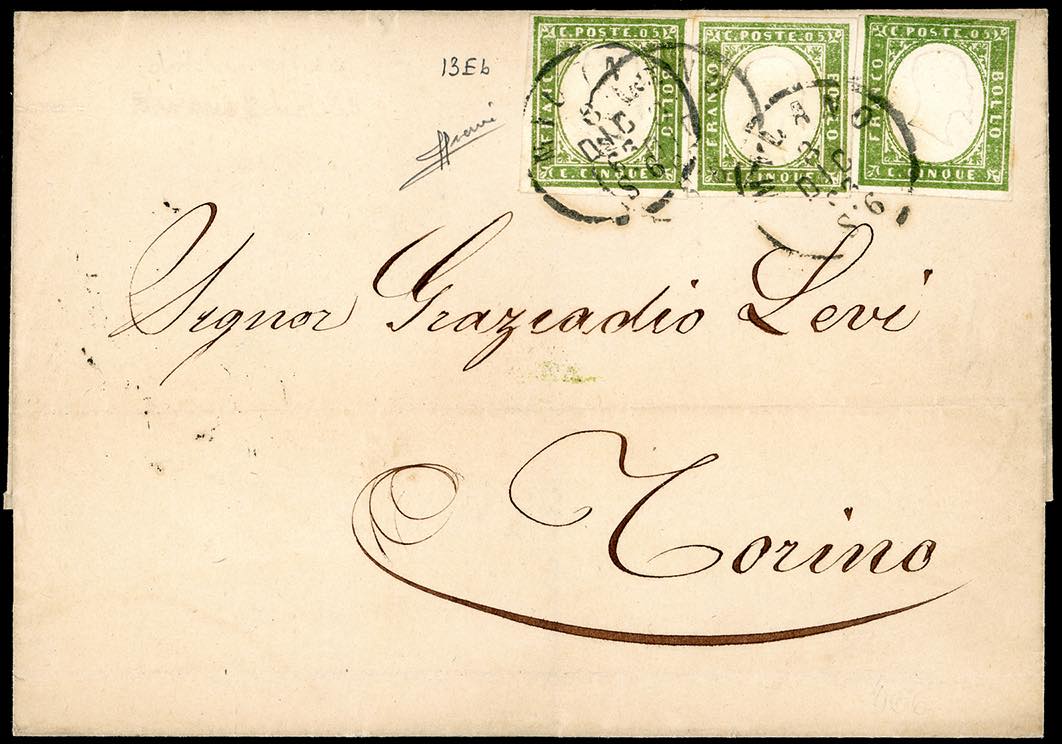 C. POSTE. 05 C. POSTE. 05 C. POSTE. 05
FRANCO BOLLO FRANCO BOLLO FRANCO BOLLO
C. CINQUE C. CINQUE C. CINQUE
13Eb
Signor Graziadio Levi
Torino